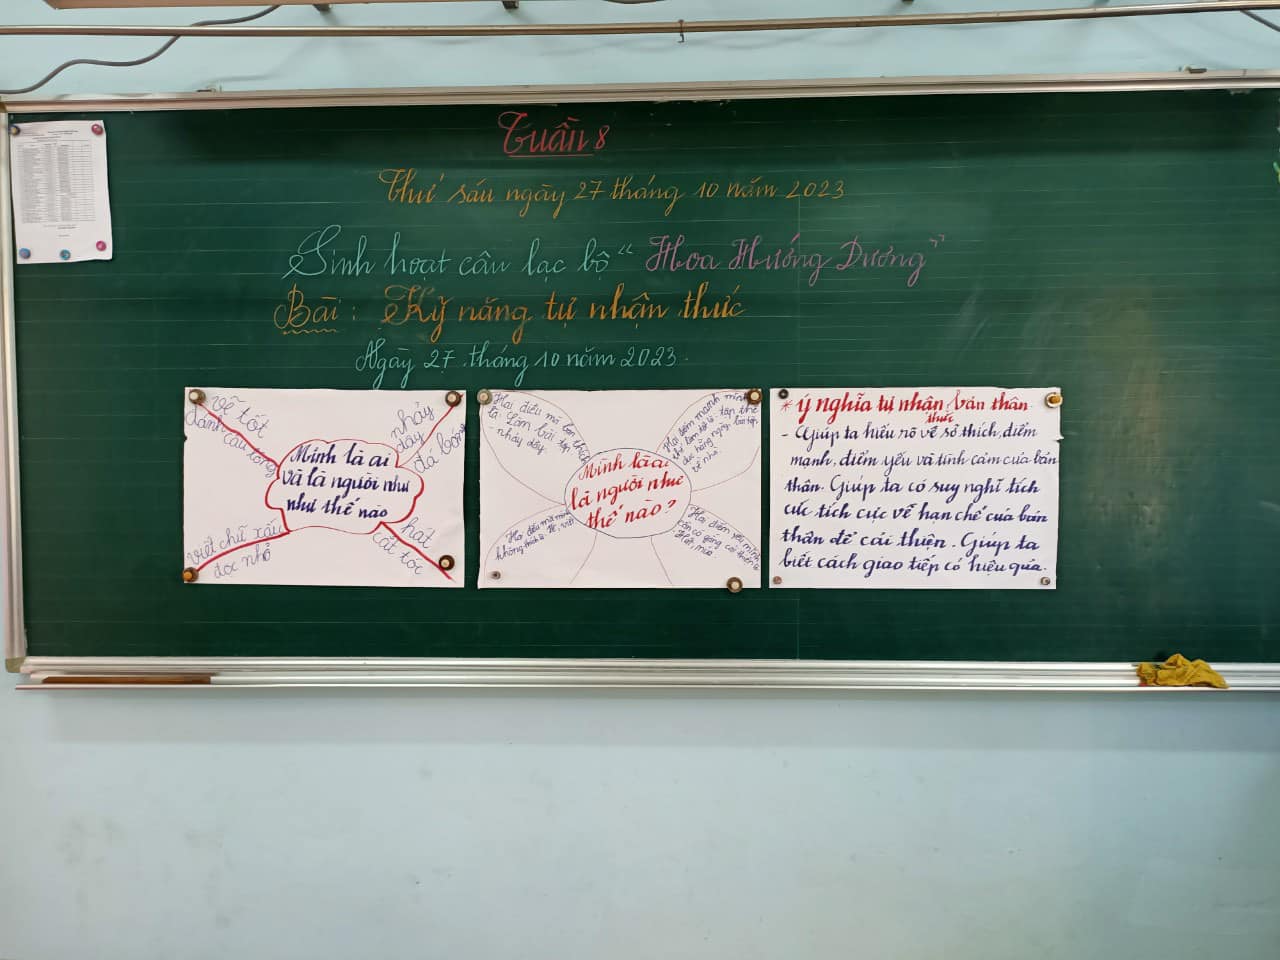 Tuần 8
Thứ sáu ngày 27 tháng 10 năm 2023
Sinh hoạt câu lạc bộ " Hoa Hướng Dương"
Bài : Kỹ năng tự nhận thức
Ngày 27 tháng 10 năm 2023.
vẽ tốt
đánh cầu lông
nhảy
dây
đá bóng
Mình là ai
và là người như
như thế nào
viết chữ xấu
đọc nhỏ
hát
cắt tóc
Hai điều mà bản thích
là: Làm bài tập
- nhảy dây
Hai điểm mạnh mình
Mình là ai
là người như
thế nào?
Hai điều mà mình
không thích là
Hai điểm yếu mình
cần cố gắng cải thiện là
Hát, múa
* Ý nghĩa tự nhận thức bản thân
- Giúp ta hiểu rõ về sở thích, điểm
mạnh, điểm yếu và tính cảm của bản
thân. Giúp ta có suy nghĩ tích
cức tích cực về hạn chế của bản
thân để cải thiện. Giúp ta
biết cách giao tiếp có hiệu quả.